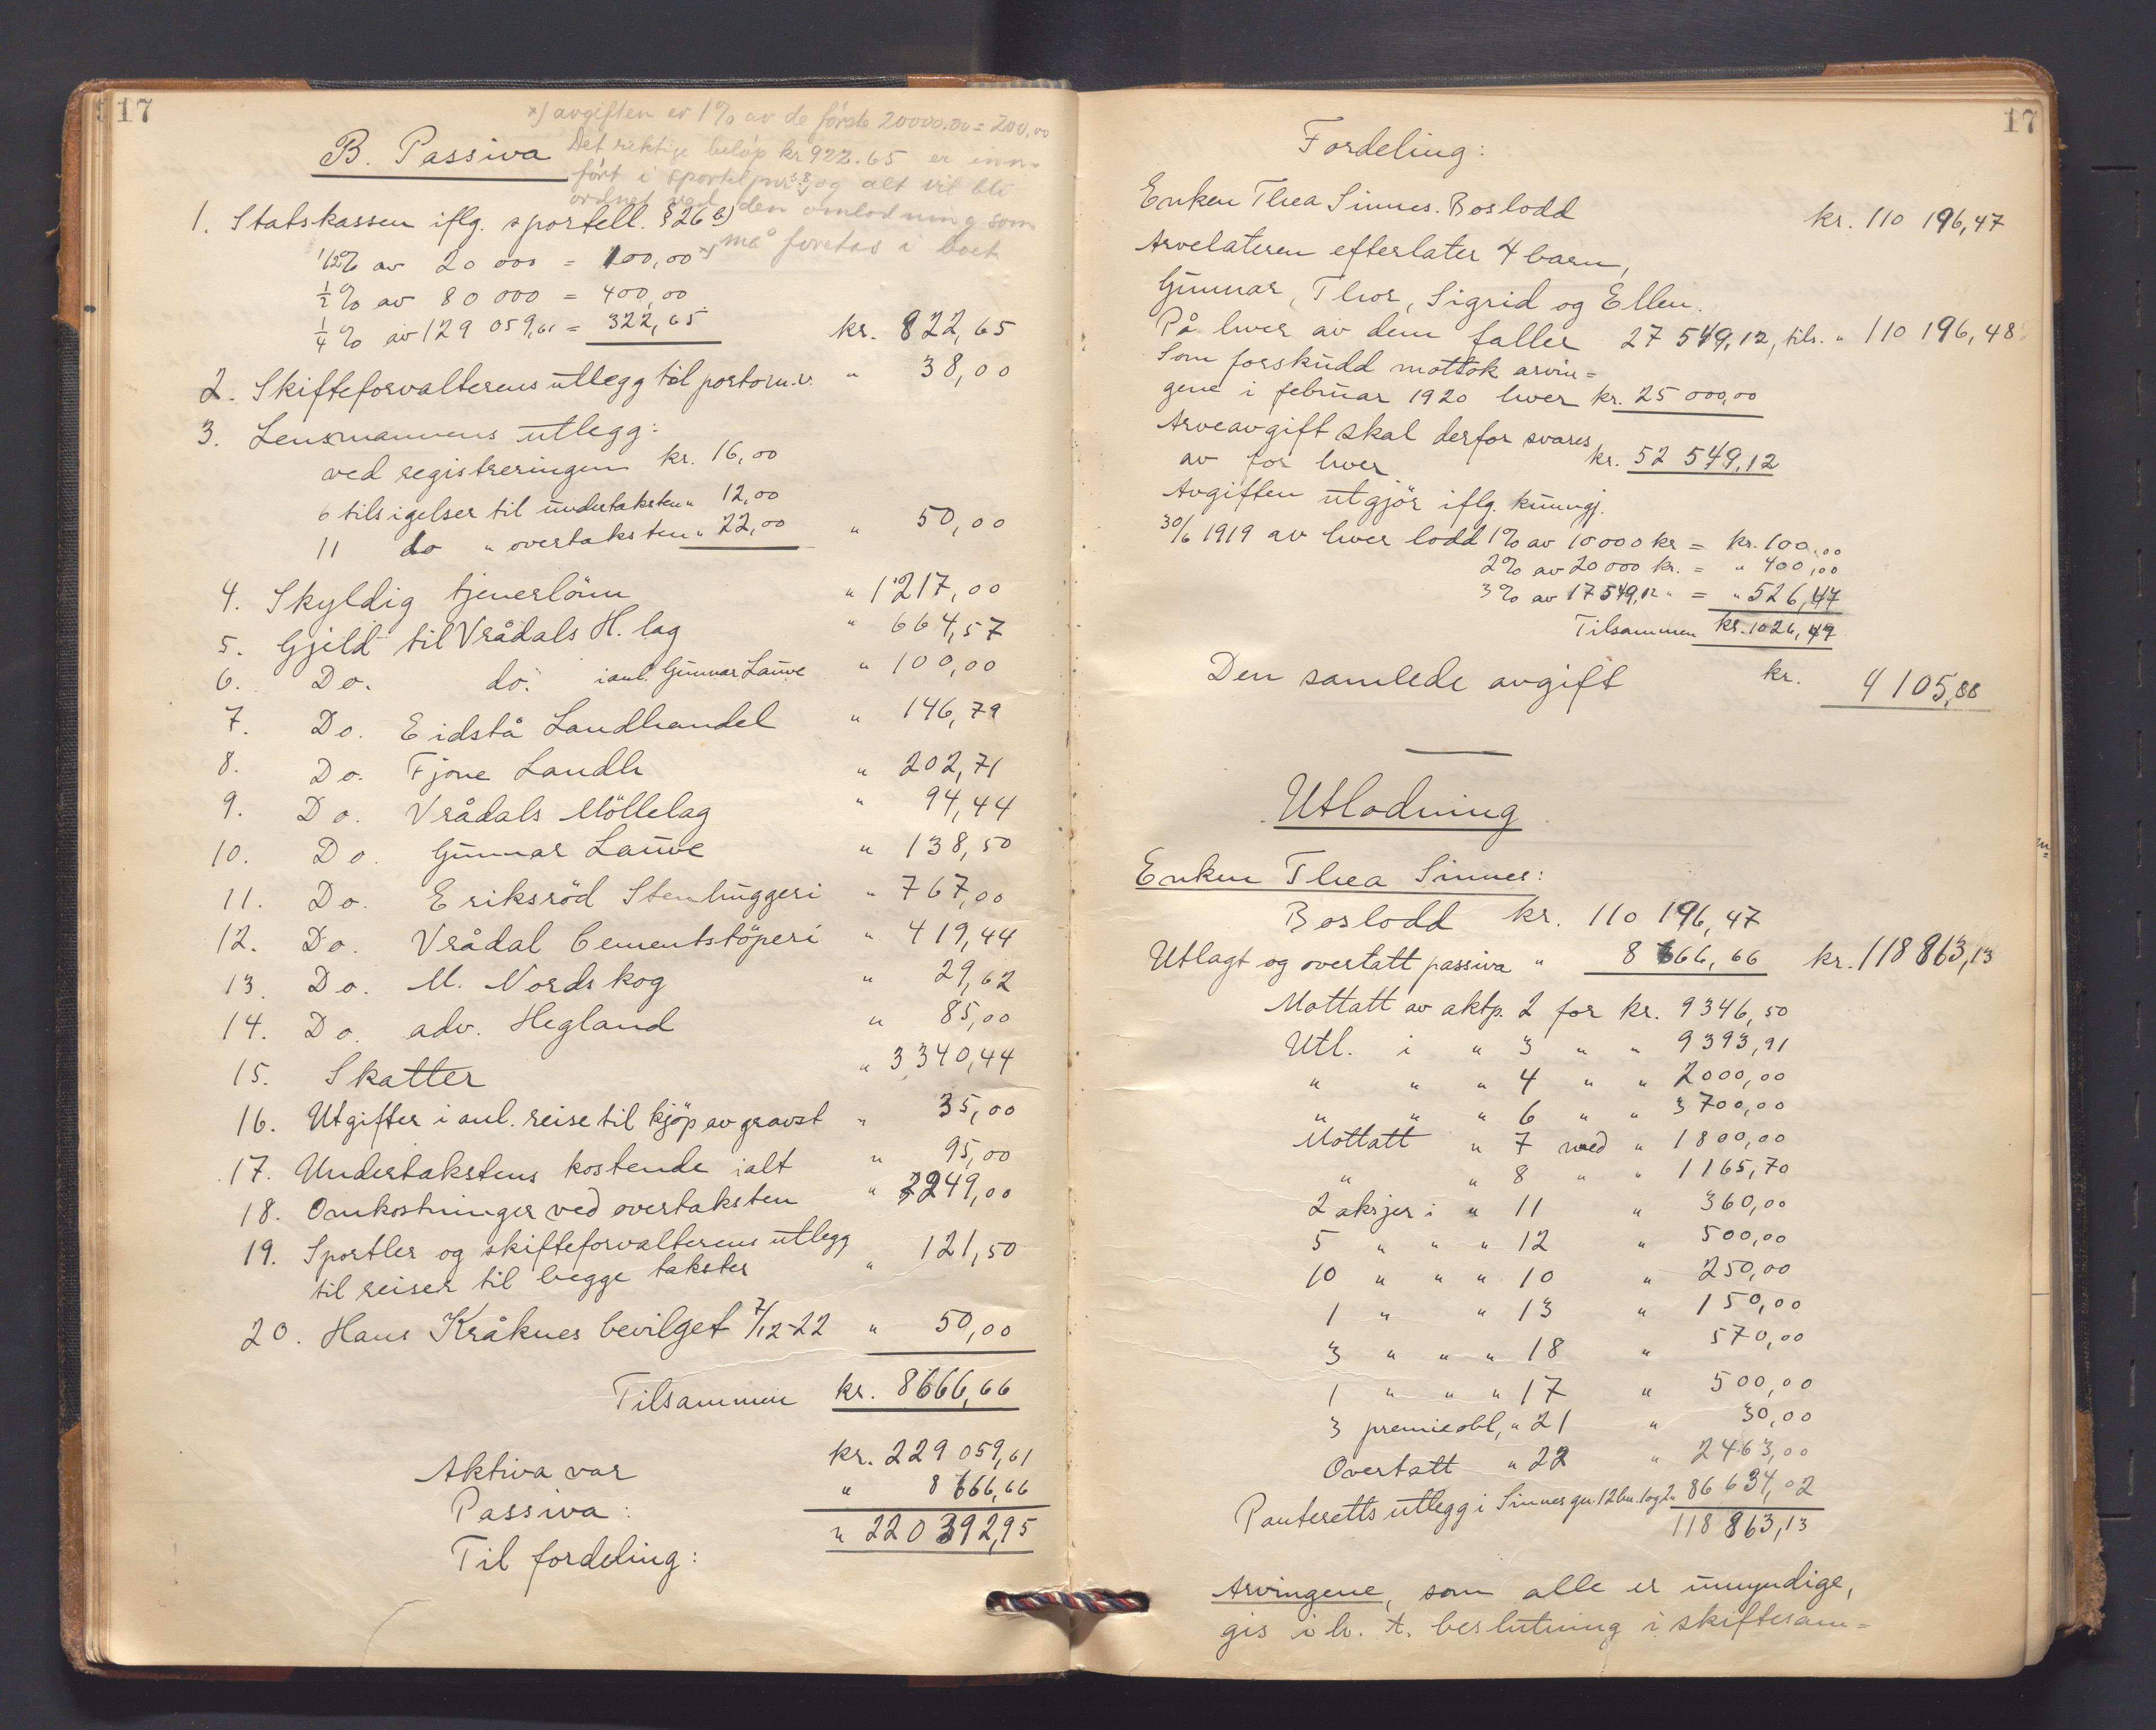 17
x) avgiften er 1% av de første 20000.00 = 200,00
Det riktige beløp kr 922.65 er inn-
ført i og alt vil bli
ordnet ved den omlodning som
må foretas i boet
B. Passiva
1. Statskassen iflg. sportell. § 26 b)
1/2% av 20 000 = 100,00 x)
1/2% av 80 000 = 400,00
1/4% av 129 059,61 = 322,65 kr. 822,65
2. Skifteforvalterens utlegg til porto m.v. " 38,00
3. Lensmannens utlegg:
ved registreringen kr. 16,00
6 tilsigelser til undertaksten " 12,00
11 do " overtaksten " 22,00 " 50,00
4. Skyldig tjenerlönn " 1217,00
5. Gjeld til Vrådals H. lag " 664,57
6. Do. do. i anl. Gunnar Lauve " 100,00
7. Do. Eidstå Landhandel " 146,79
8. Do. Fjone Landh " 202,71
9. Do. Vrådals Möllelag " 94,44
10. Do. Gunnar Lauve " 138,50
11. Do. Eriksröd Stenhuggeri " 767,00
12. Do. Vrådal Cementstöperi " 419,44
13. Do. M. Nordskog " 29,62
14. Do. adv. Hegland " 85,00
15. Skatter " 3340,44
16. Utgifter i anl. reise til kjöp av gravst " 35,00
17. Undertakstens kostende ialt " 95,00
18. Omkostninger ved overtaksten " 249,00
19. Sportler og skifteforvalterens utlegg
til reiser til begge takster " 121,50
20. Hans Kråknes bevilget 7/12-22 " 50,00
Tilsammen kr. 8666,66
Aktiva var kr. 229 059,61
Passiva: " 8 666,66
Til fordeling: " 220 392,95
17
Fordeling:
Enken Thea Sinnes. Boslodd kr. 110 196,47
Arvelateren efterlater 4 barn,
Gunnar, Thor, Sigrid og Ellen.
På hver av dem faller 27 549,12, tils. " 110 196,48
Som forskudd mottok arvin=
gene i februar 1920 hver kr. 25 000,00
Arveavgift skal derfor svares
av for hver kr. 52 549,12
Avgiften utgjör iflg. kunngj.
30/6 1919 av hver lodd 1% av 10000 kr = kr. 100,00
2% av 20 000 kr. = " 400,00
3% av 17 549,12 " = " 526,47
Tilsammen kr. 1026,47
Den samlede avgift kr. 4105,88
Utlodning
Enken Thea Sinnes:
Boslodd kr. 110 196,47
Utlagt og overtatt passiva " 8 666,66 kr. 118 863,13
Mottatt av aktp. 2 for kr. 9346,50
Utl. i " 3 " " 9393,91
" " " 4 " " 2000,00
" " " 6 " " 3700,00
Mottatt " 7 med " 1800,00
" " 8 " " 1165,70
2 aksjer i " 11 " 360,00
5 " " " 12 " 500,00
10 " " " 10 " 250,00
1 " " 13 " 150,00
3 " " " 18 " 570,00
1 " " " 17 " 500,00
3 premieobl, " 21 " 30,00
Overtatt " 22 " 2463,00
Panteretts utlegg i Sinnes gn. 12 bn. 1 og 2 " 86 634,02
118 863,13
Arvingene, som alle er umyndige,
gis i h. t. beslutning i skiftesam=